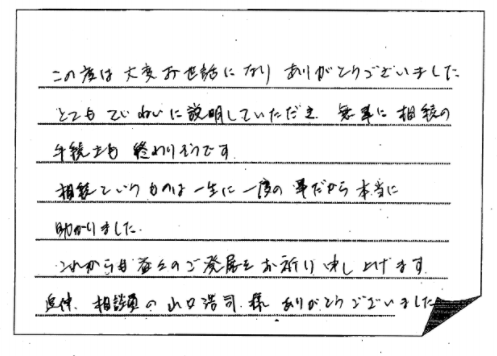 この度は大変お世話になりありがとうございました
とてもていねいに説明していただき、無事に相続の
手続きも終わりそうです
相続というものは一生に一度の事だから本当に
助かりました.
これからも益々のご発展をお祈り申し上げます.
追伸. 相談員の山口浩司様 ありがとうございました